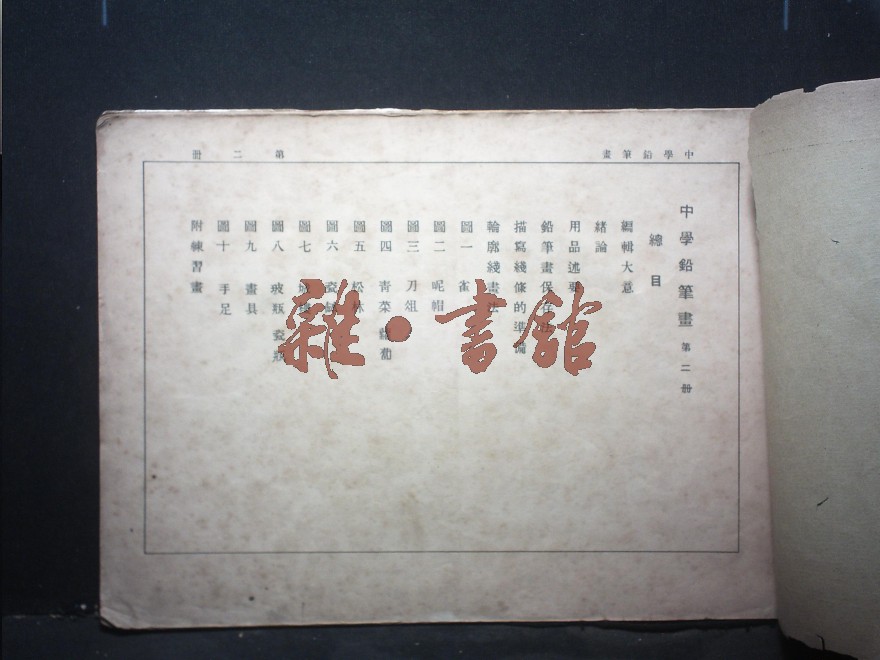 中學鉛筆畫
第二册
中學鉛筆畫 第二册
總目
編輯大意
緒論
用品述要
鉛筆畫保存法
描寫綫條的準備
輪廓綫畫法
圖一
圖二 呢帽
圖三 刀俎
圖四 青菜 蘿蔔
圖五 松林
圖六
圖七
圖八 玻瓶 瓷瓶
圖九 畫具
圖十 手足
附練習畫
雜·書館